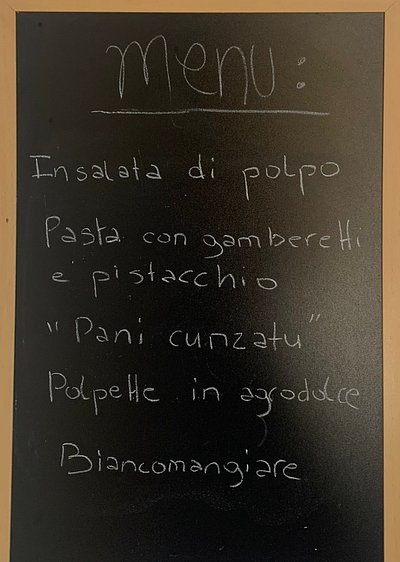 Menu:
Insalata di polpo
Pasta con gamberetti
e pistacchio
"Pani cunzatu"
Polpette in agrodolce
Biancomangiare